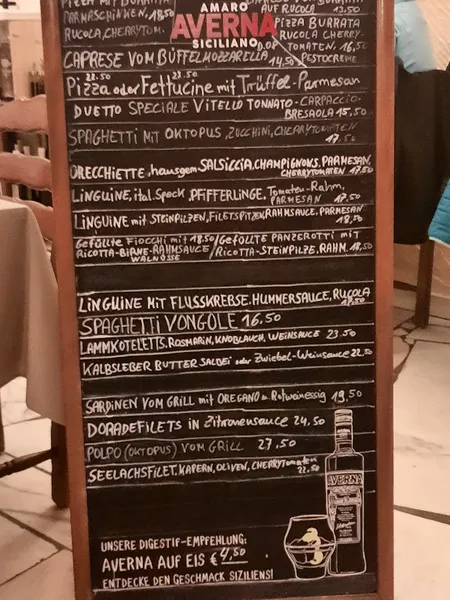 PIZZA MIT BURRATA
PARMASCHINKEN. 18,50
RUCOLA, CHERRYTOM.
AMARO
AVERNA
SICILIANO
AUF RUCOLA 13.50
PIZZA BURRATA
RUCOLA CHERRY-
TOMATEN. 16,50
PESTOCREME
CAPRESE VOM BÜFFELMOZZARELLA D.O.P 14,50
22.50 23.50
PIZZA oder FETTUCINE MIT TRÜFFEL-PARMESAN
DUETTO SPECIALE VITELLO TONNATO - CARPACCIO-
BRESAOLA 15.50
SPAGHETTI MIT OKTOPUS, ZUCCHINI, CHERRYTOMATEN
17.50
ORECCHIETTE, hausgem. SALSICCIA, CHAMPIGNONS, PARMESAN,
CHERRYTOMATEN 17.50
LINGUINE, ital. Speck, PFIFFERLINGE, Tomaten-Rahm,
PARMESAN 17.50
LINGUINE mit STEINPILZEN, FILETSPITZEN RAHMSAUCE, PARMESAN
18,50
Gefüllte Fiocchi mit 18.50 / Gefüllte Panzerotti mit
RICOTTA-BIRNE-RAHMSAUCE / RICOTTA-STEINPILZE, RAHM. 18,50
WALNÜSSE
LINGUINE MIT FLUSSKREBSE, HUMMERSAUCE, RUCOLA
17.50
SPAGHETTI VONGOLE 16.50
LAMMKOTELETTS, ROSMARIN, KNOBLAUCH, WEINSAUCE 23.50
KALBSLEBER BUTTER SALBEI oder Zwiebel-Weinsauce 22.50
SARDINEN VOM GRILL mit OREGANO u. Rotweinessig 19,50
DORADEFILETS IN Zitronensauce 24,50
POLPO (OKTOPUS) VOM GRILL 27,50
SEELACHSFILET, KAPERN, OLIVEN, CHERRYTOMATEN
22.50
AVERNA
UNSERE DIGESTIF-EMPFEHLUNG:
AVERNA AUF EIS € 4,50
ENTDECKE DEN GESCHMACK SIZILIENS!